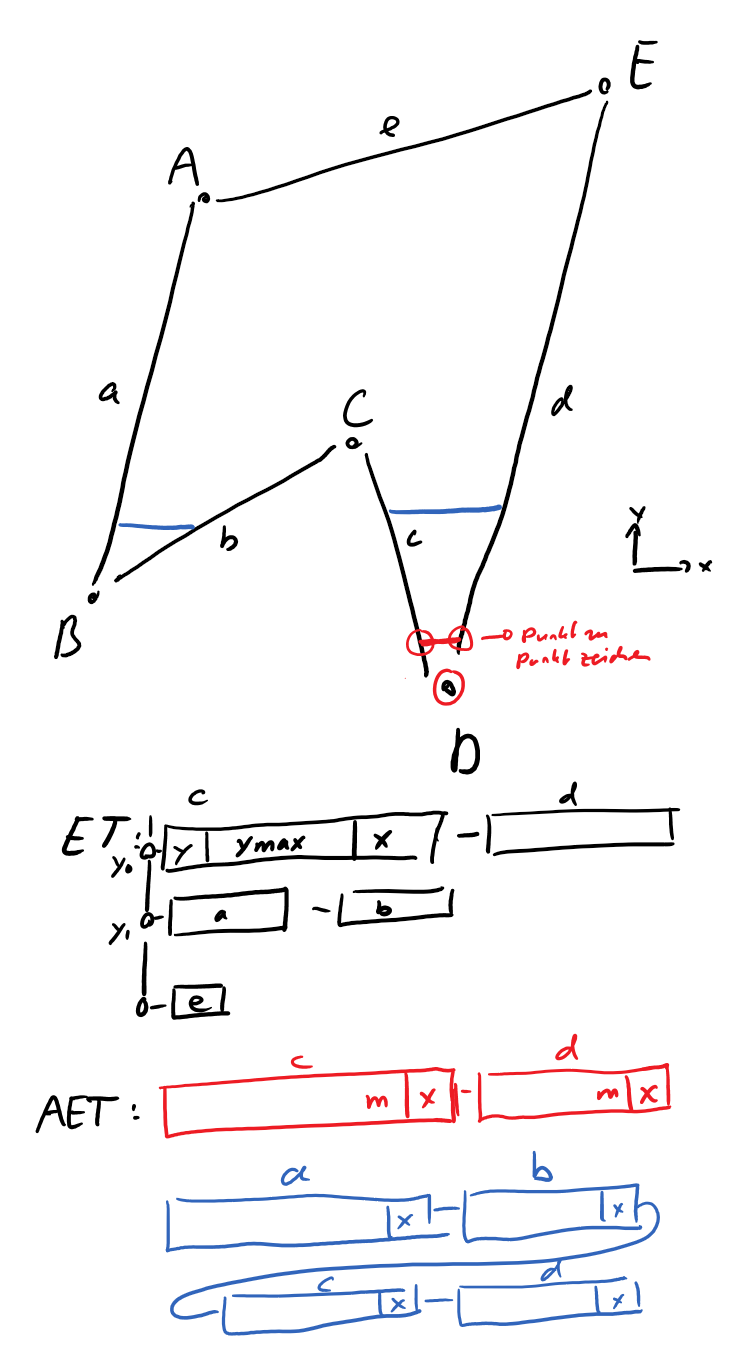 E
e
A
a
d
C
b
c
Y
x
B
Punkt zu
Punkt zeichen
D
c d
ET:
y₀ y ymax x
y₁ a b
e
c d
AET: m x m x
a b
x x
c d
x x